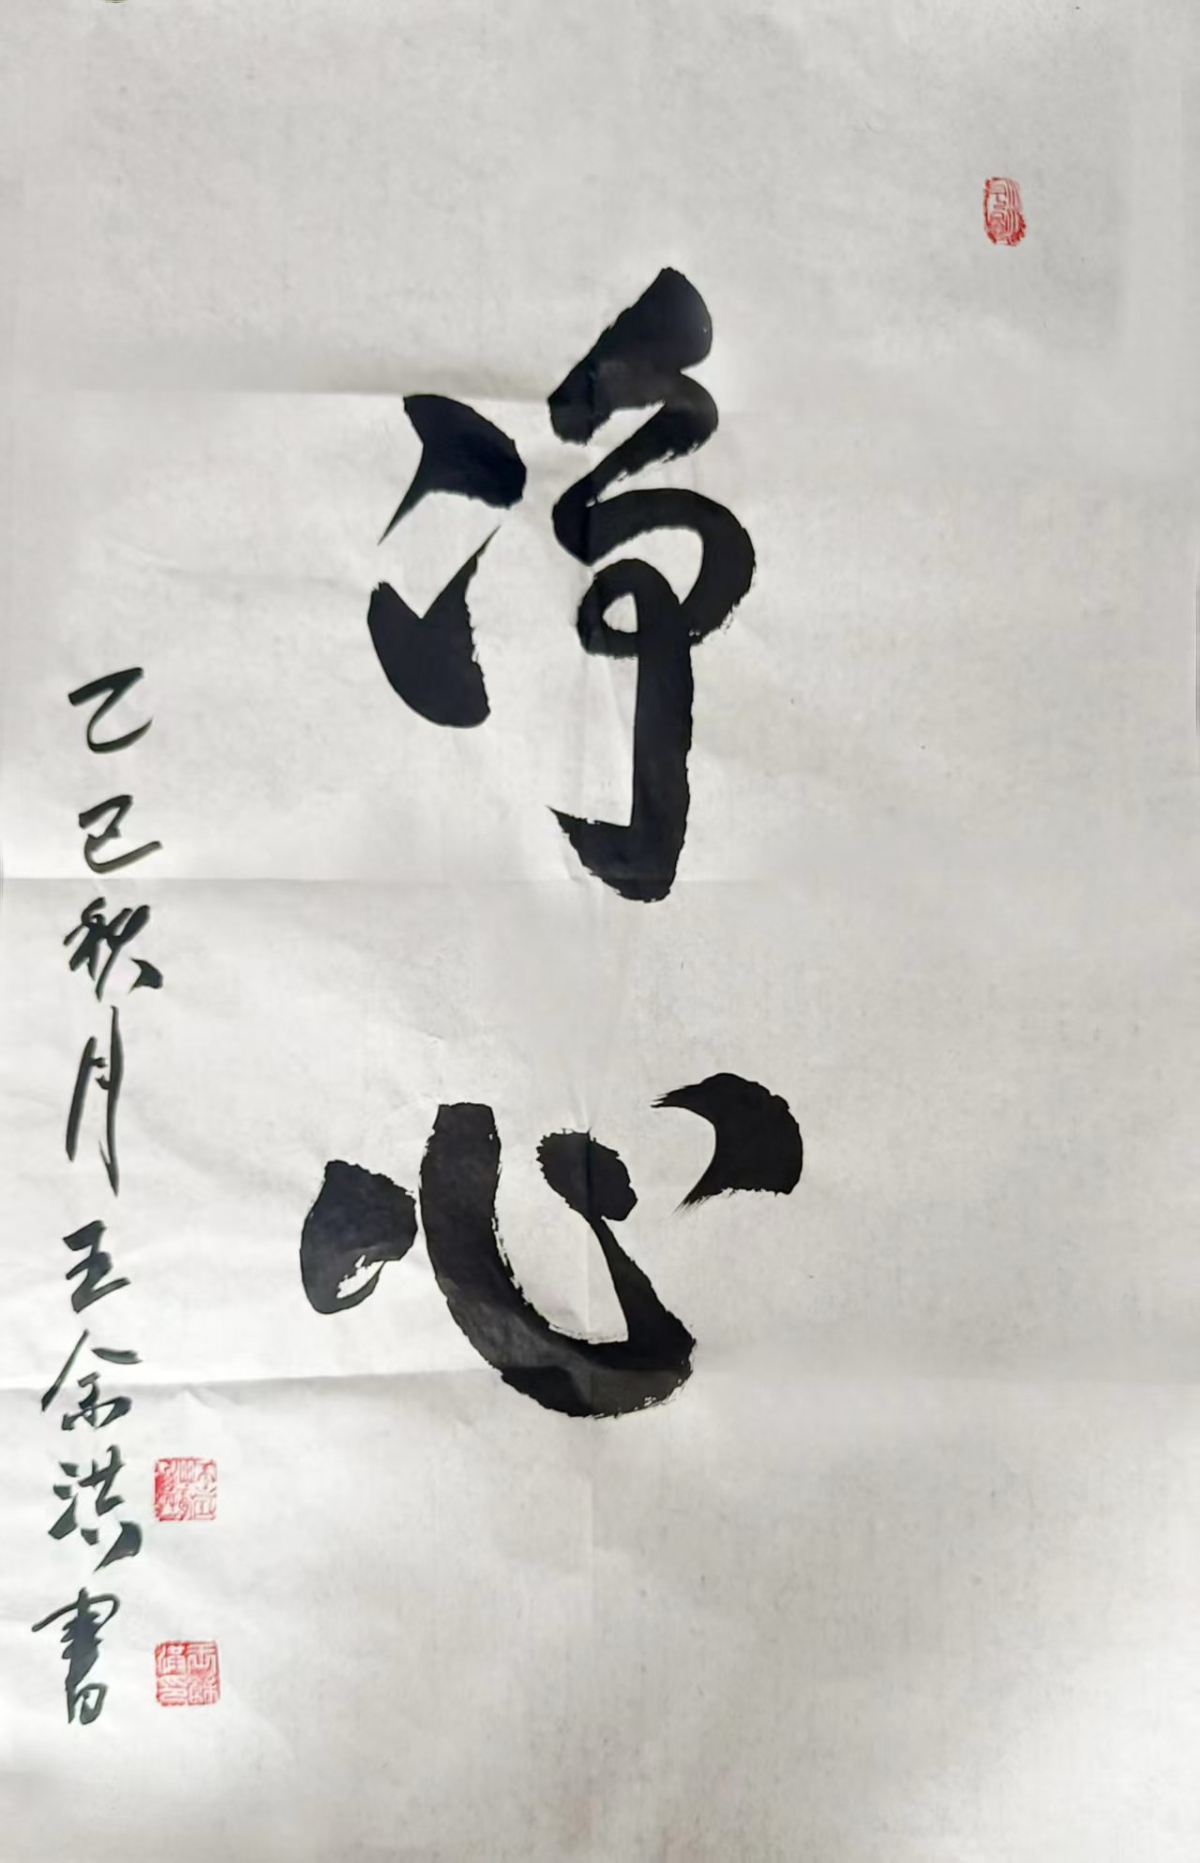 净心
乙巳秋月王余洪書